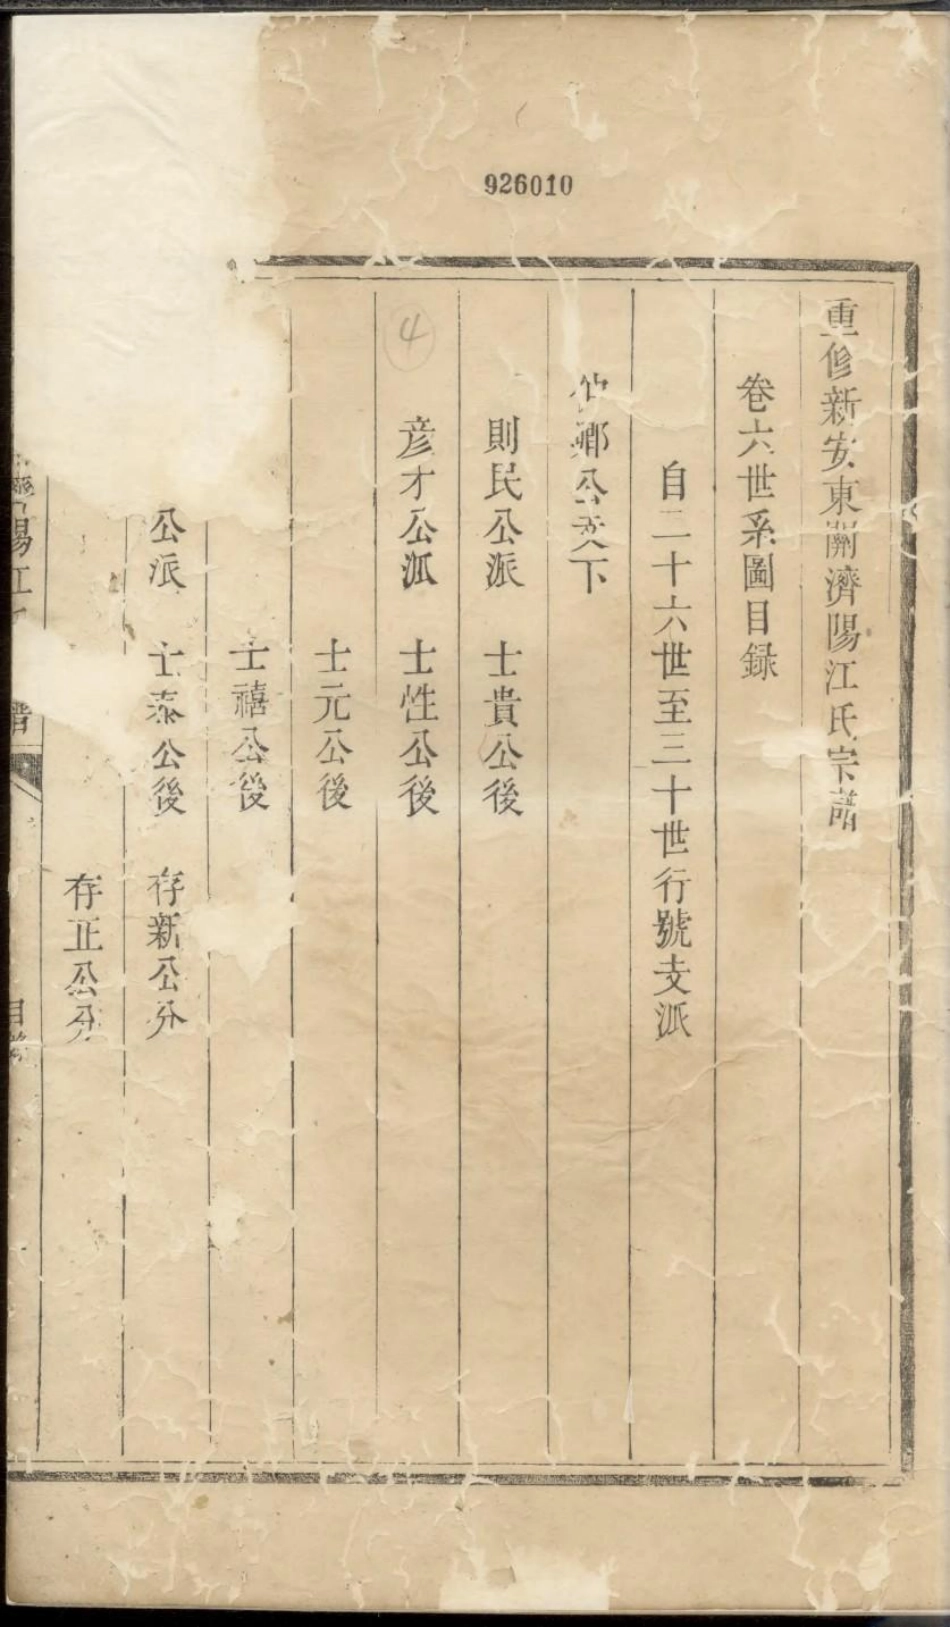 926010
重修新安東關濟陽江氏宗譜
卷六世系圖目録
自二十六世至三十世行號支派
鄉公支下
則民公派 士貴公後
4
彦才公派 士性公後
士元公後
士禧公後
公派 士泰公後 存新公分
存正公分
濟陽江 譜 目